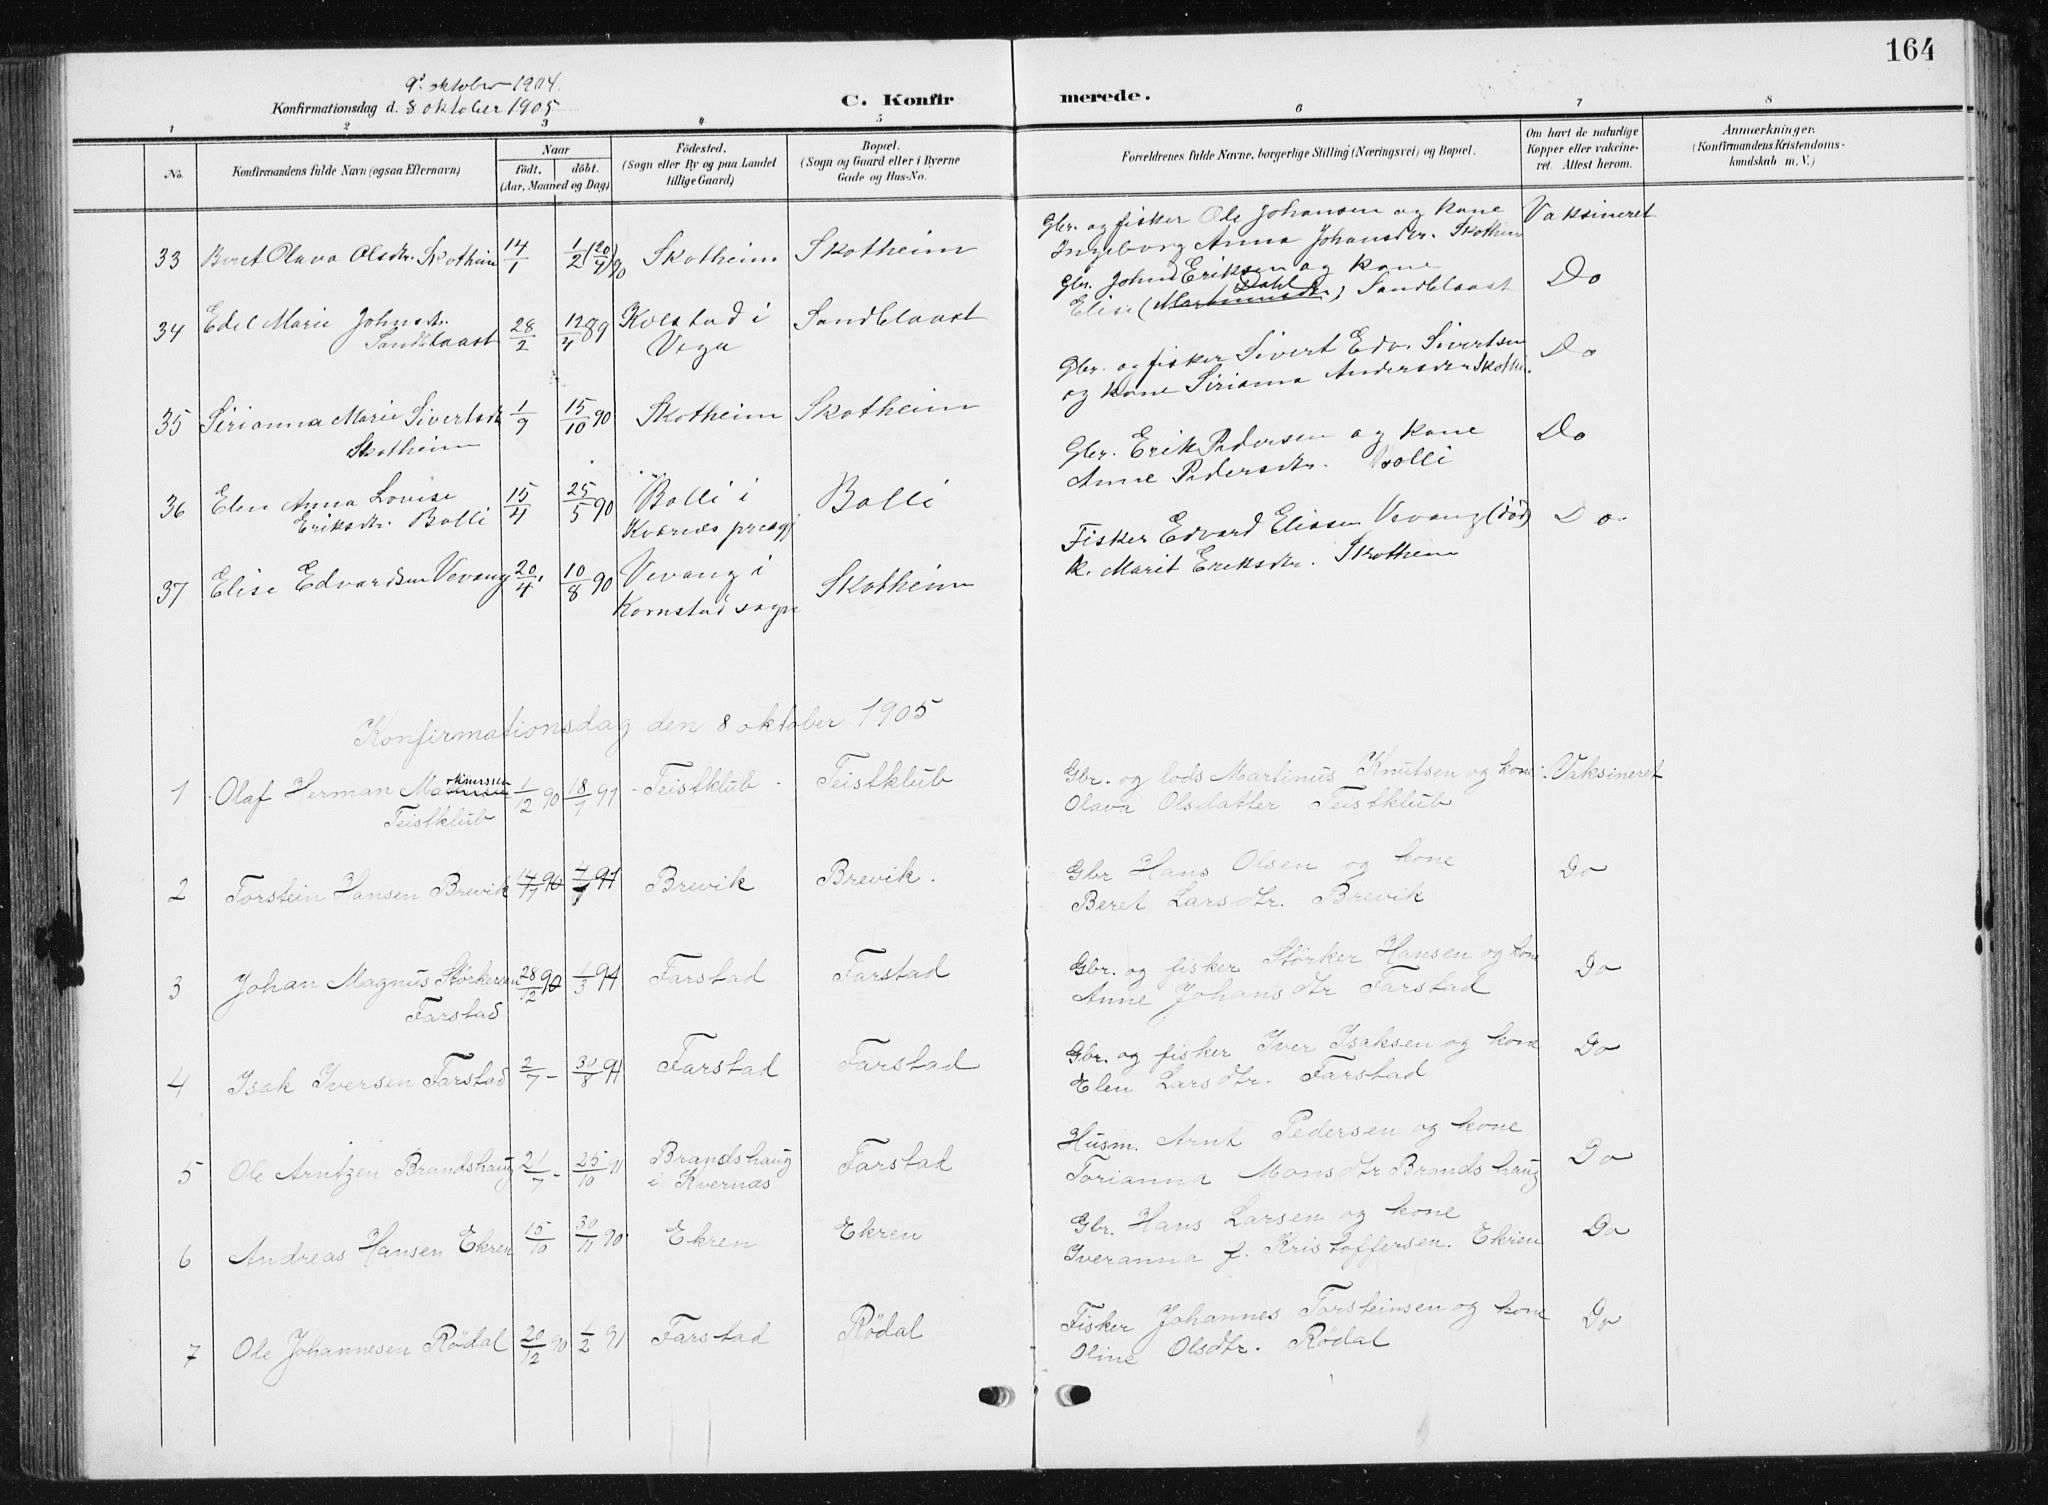 164
9' oktober 1904.
Konfirmationsdag d. 8 oktober 1905
C. Konfirmerede.
1 2 3 4 5 6 7 8
No. Konfirmandens fulde Navn (ogsaa Efternavn) Naar født. døbt. (Aar, Maaned og Dag) Fødested. (Sogn eller By og paa Landet tillige Gaard) Bopæl. (Sogn og Gaard eller i Byerne Gade og Hus-No. Forældrenes fulde Navne, borgerlige Stilling (Næringsvei) og Bopæl. Om havt de naturlige Kopper eller vakcineret. Attest herom. Anmærkninger. (Konfirmandens Kristendomskundskab m. V.)
33 Beret Olava Olsdtr. Skotheim 14/1 1/2 (20/4) 90 Skotheim Skotheim Gbr. og fisker Ole Johansen og kone Vaksineret
Ingeborg Anna Johansdtr. Skotheim
34 Edel Marie Johnsdtr. 28/2 12/4 89 Kolstad i Sandblaast Gbr. John Eriksen og kone Do
Sandblaast Vega Elise (Dahl) Sandblaast
35 Sirianna Marie Sivertsdtr 1/9 15/10 90 Skotheim Skotheim Gbr. og fisker Sivert Edv. Sivertsen Do
Skotheim og kone Sirianna Andersdtr Skothei.
36 Elen Anna Lovise 15/4 25/5 90 Bolli i Bolli Gbr. Erik Pedersen og kone Do
Eriksdtr. Bolli Kværnes præstgj Anne Pedersdtr. Bolli
37 Elise Edvardsen Vevang 20/4 10/8 90 Vevang i Skotheim Fisker Edvard Eliasen Vevang (død) Do
Kornstad sogn k. Marit Eriksdtr. Skotheim
Konfirmationsdag den 8 oktober 1905
1 Olaf Herman Martinussen 1/12 90 18/1 91 Teistklub Teistklub Gbr. og lods Martinus Knutsen og kone Vaksineret
Teistklub Olava Olsdatter Teistklub
2 Torstein Hansen Brevik 91 Brevik Brevik. Gbr Hans Olsen og kone Do
Beret Larsdtr. Brevik
3 Johan Magnus Størkersen 28/12 90 1/3 91 Farstad Farstad Gbr. og fisker Størker Hansen og kone Do
Farstad Anne Johansdtr Farstad
4 Isak Iversen Farstad 2/7 - 30/8 91 Farstad Farstad Gbr. og fisker Iver Isaksen og kone Do
Elen Larsdtr. Farstad
5 Ole Arntzen Brandshaug 21/7 - 25/10 91 Brandshaug Farstad Husm. Arnt Pedersen og kone Do
i Kvernæs Torianna Monsdtr Brandshaug
6 Andreas Hansen Ekren 15/10 30/11 90 Ekren Ekren Gbr. Hans Larsen og kone Do
Iveranna f. Kristoffersen. Ekren
7 Ole Johannesen Rødal 20/12 90 1/2 91 Farstad Rødal Fisker Johannes Torsteinsen og kone Do
Oline Olsdtr. Rødal